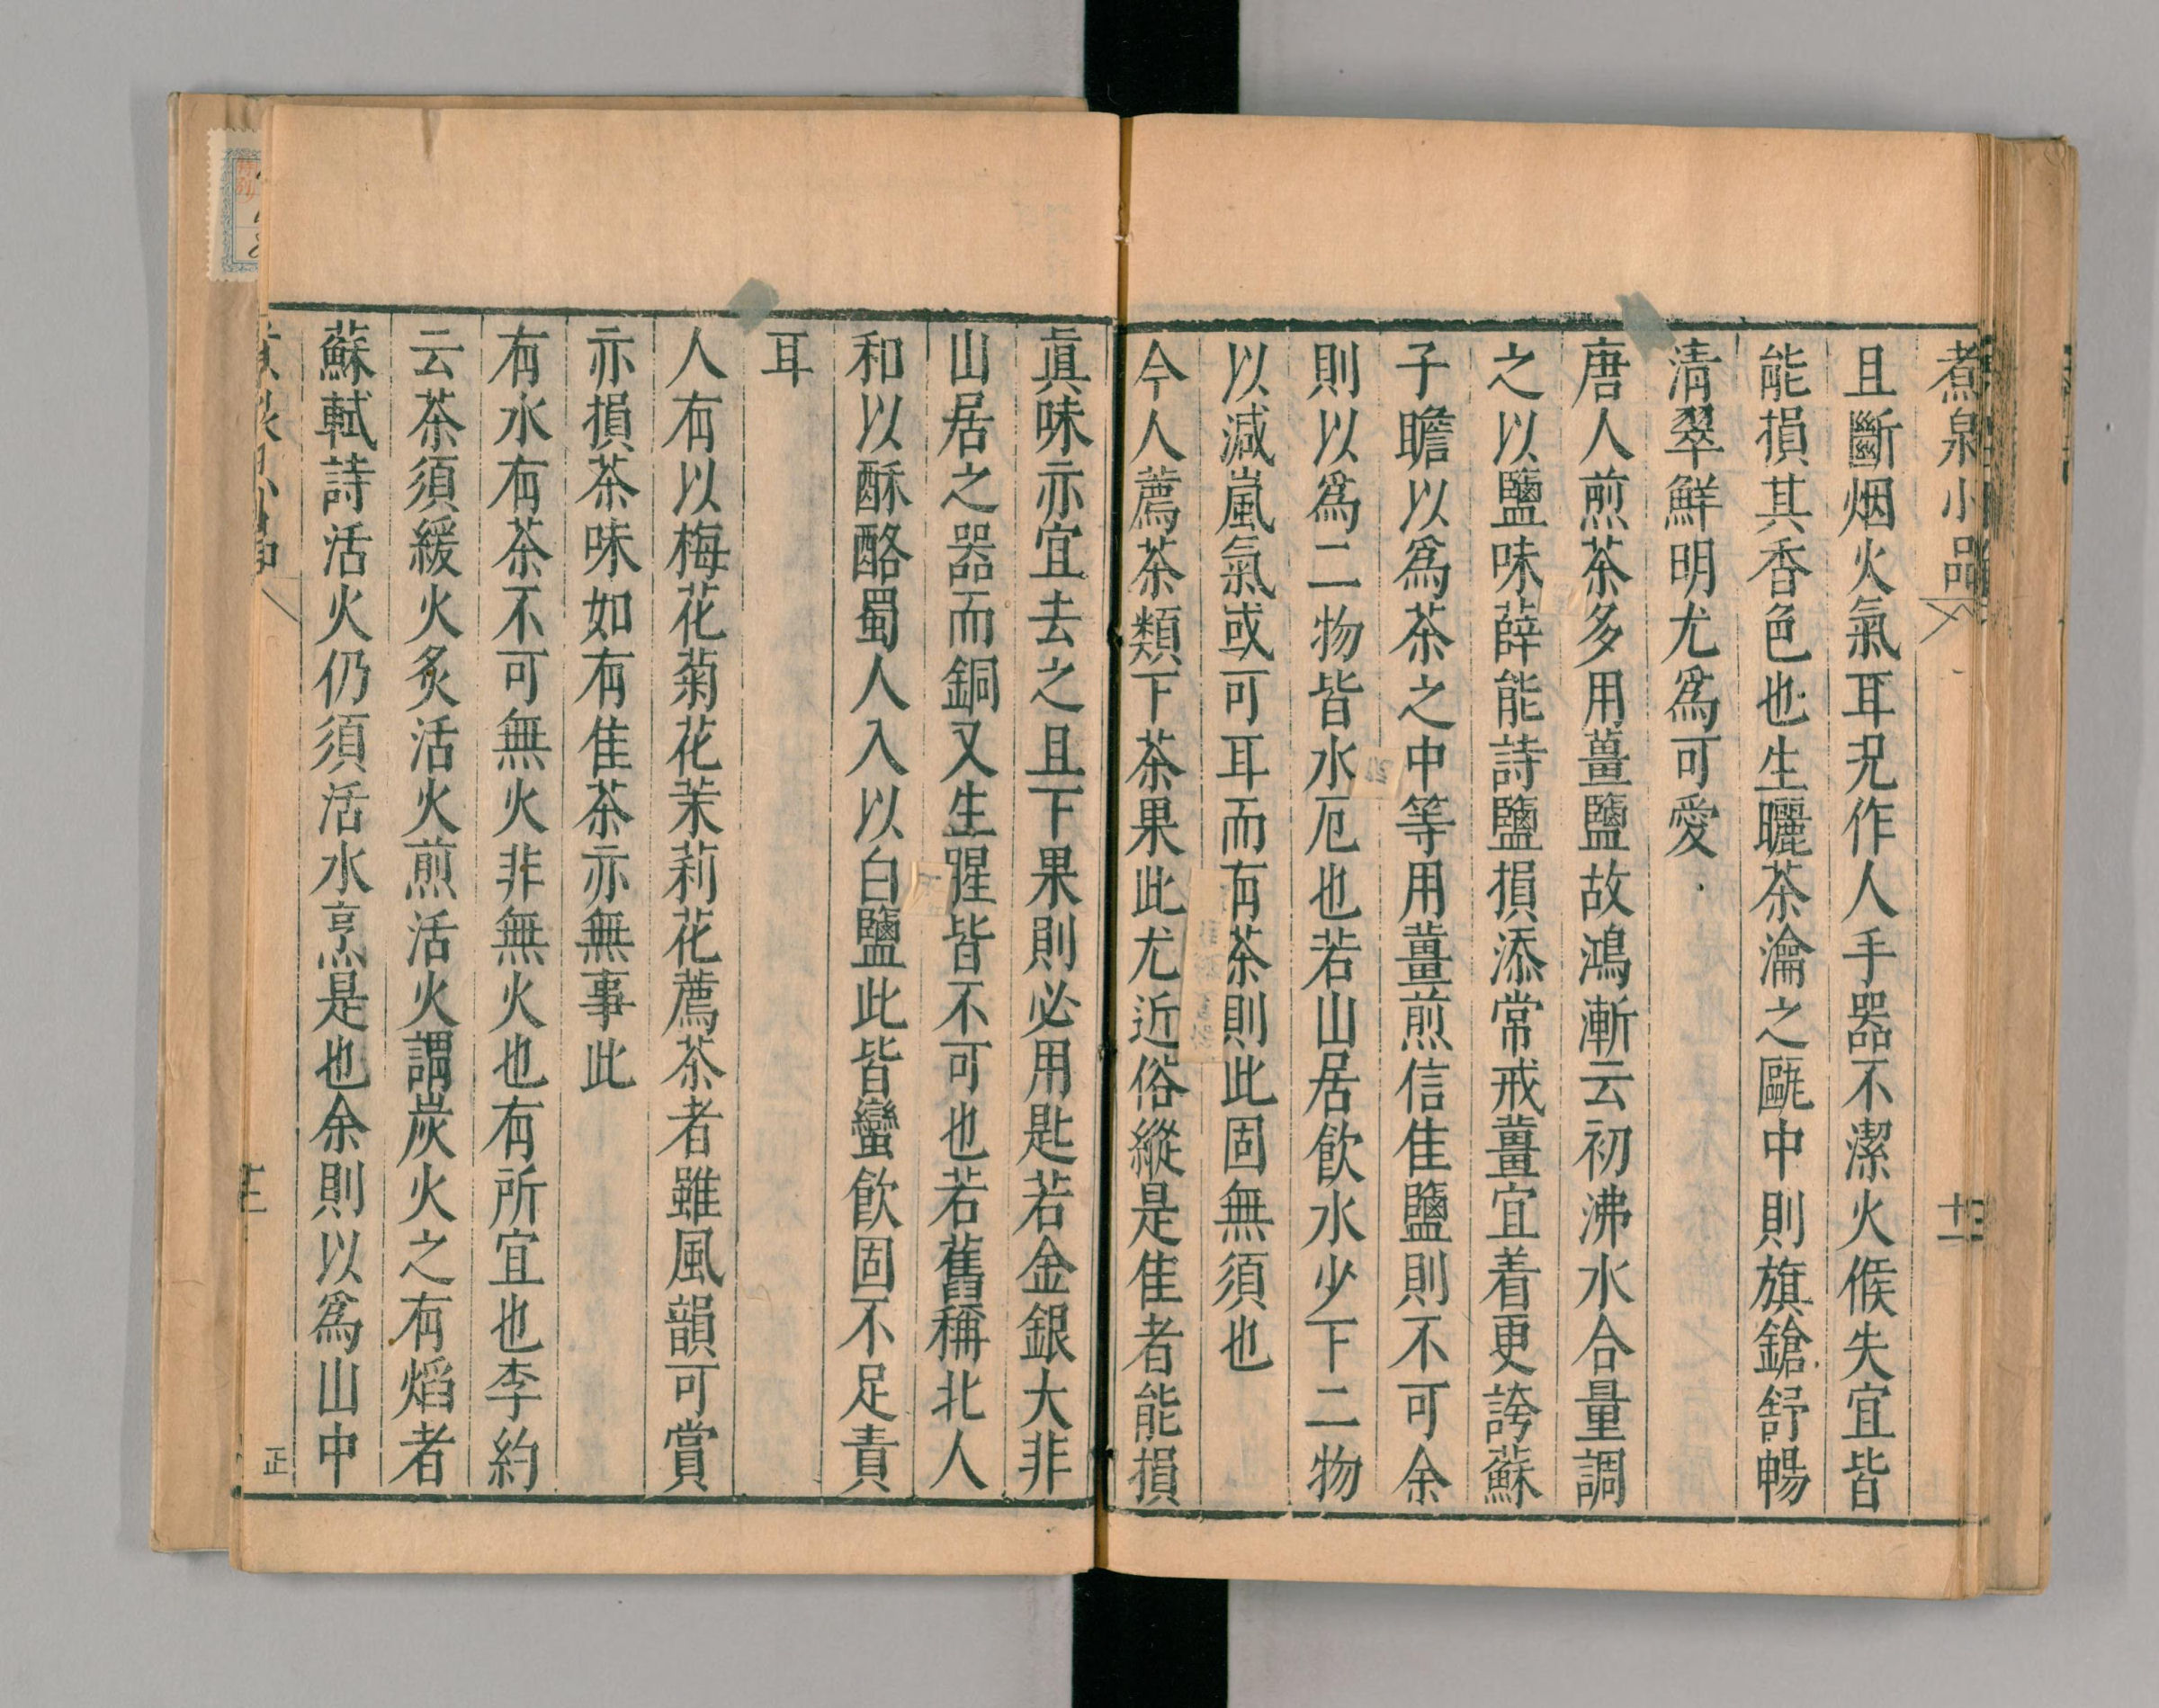 煮泉小品
十二
且斷烟火氣耳况作人手器不潔火候失宜皆
能損其香色也生曬茶瀹之甌中則旗鎗舒暢
淸翠鮮明尤爲可愛
唐人煎茶多用薑鹽故鴻漸云初沸水合量調
之以鹽味薛能詩鹽損添常戒薑宜着更誇蘇
子瞻以爲茶之中等用薑煎信佳鹽則不可余
則以爲二物皆水厄也若山居飮水少下二物
以減嵐氣或可耳而有茶則此固無須也
今人薦茶類下茶果此尤近俗縱是佳者能損
眞味亦宜去之且下果則必用匙若金銀大非
山居之器而銅又生腥皆不可也若舊稱北人
和以酥酪蜀人入以白鹽此皆蠻飮固不足責
耳
人有以梅花菊花茉莉花薦茶者雖風韻可賞
亦損茶味如有佳茶亦無事此
有水有茶不可無火非無火也有所宜也李約
云茶須緩火炙活火煎活火謂炭火之有焰者
蘇軾詩活火仍須活水烹是也余則以爲山中
正